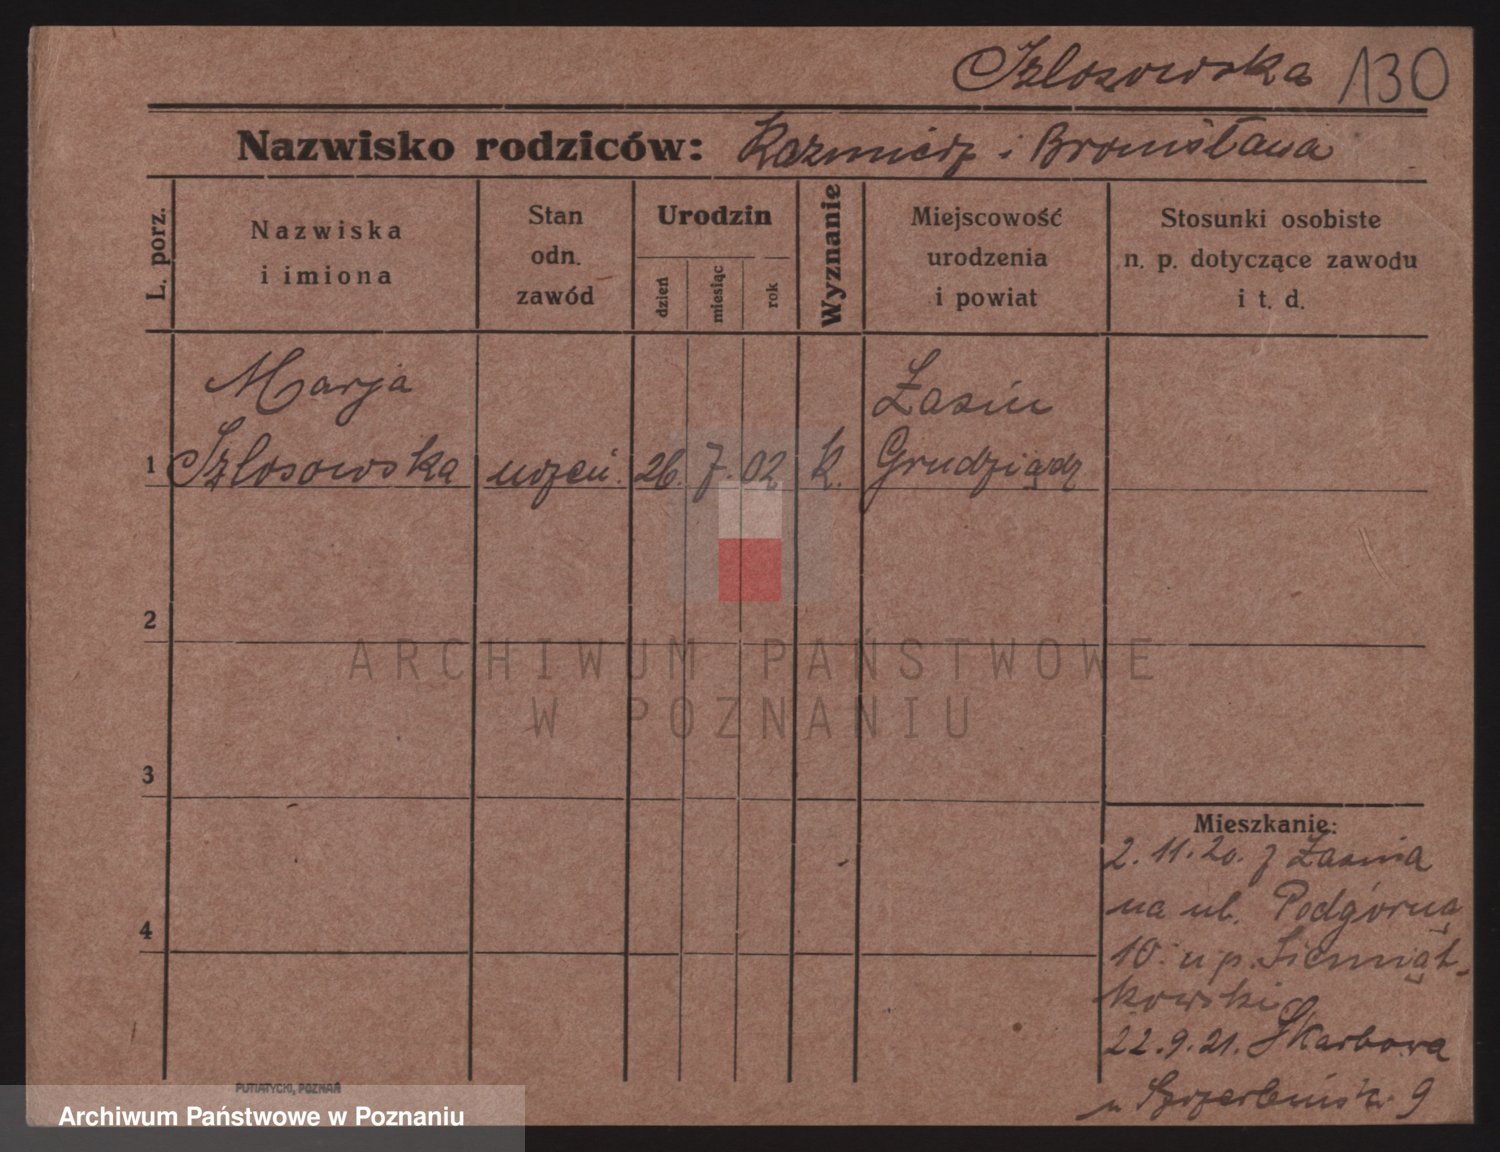 Szlosowska 130
Nazwisko rodziców: Kazmierz i Bronisława
L. porz.
Nazwiska
i imiona
Stan
odn.
zawód
Urodzin
dzień
miesiąc
rok
Wyznanie
Miejscowość
urodzenia
i powiat
Stosunki osobiste
n. p. dotyczące zawodu
i t. d.
Marja
Szlosowska
1
uczeń. 26. 7. 02 k.
Łasin
Grudziądz
2
ARCHIWUM PAŃSTWOWE
W POZNANIU
3
4
Mieszkanie:
2.11.20. z Łasina
na ul. Podgórną
10. u p. Siemiąt-
kowski
22.9.21. Skarbowa
9
PUTIATYCKI, POZNAŃ
Archiwum Państwowe w Poznaniu